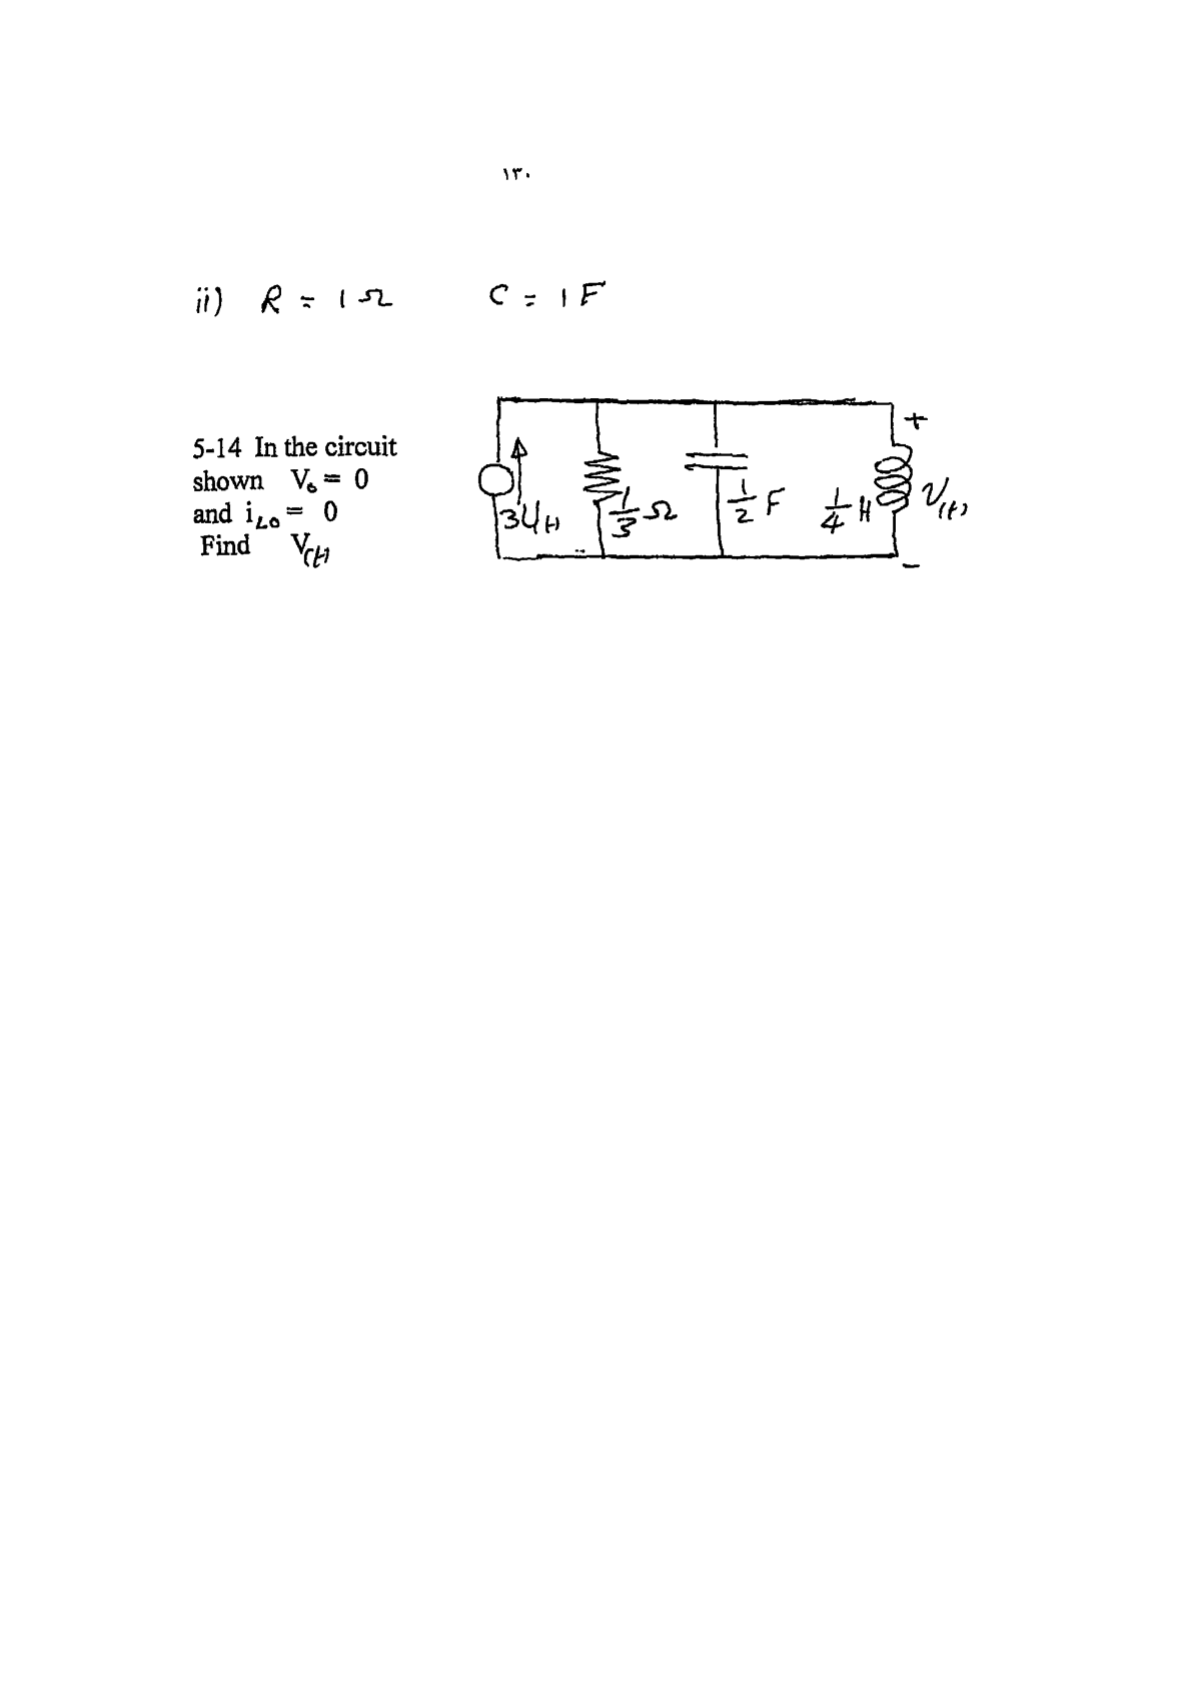 ١٣٠
ii) R = 1 Ω C = 1 F
5-14 In the circuit
shown V₀ = 0
and i_L0 = 0
Find V(t)
+
3U(t)
1/3 Ω
1/2 F
1/4 H
V(t)
−